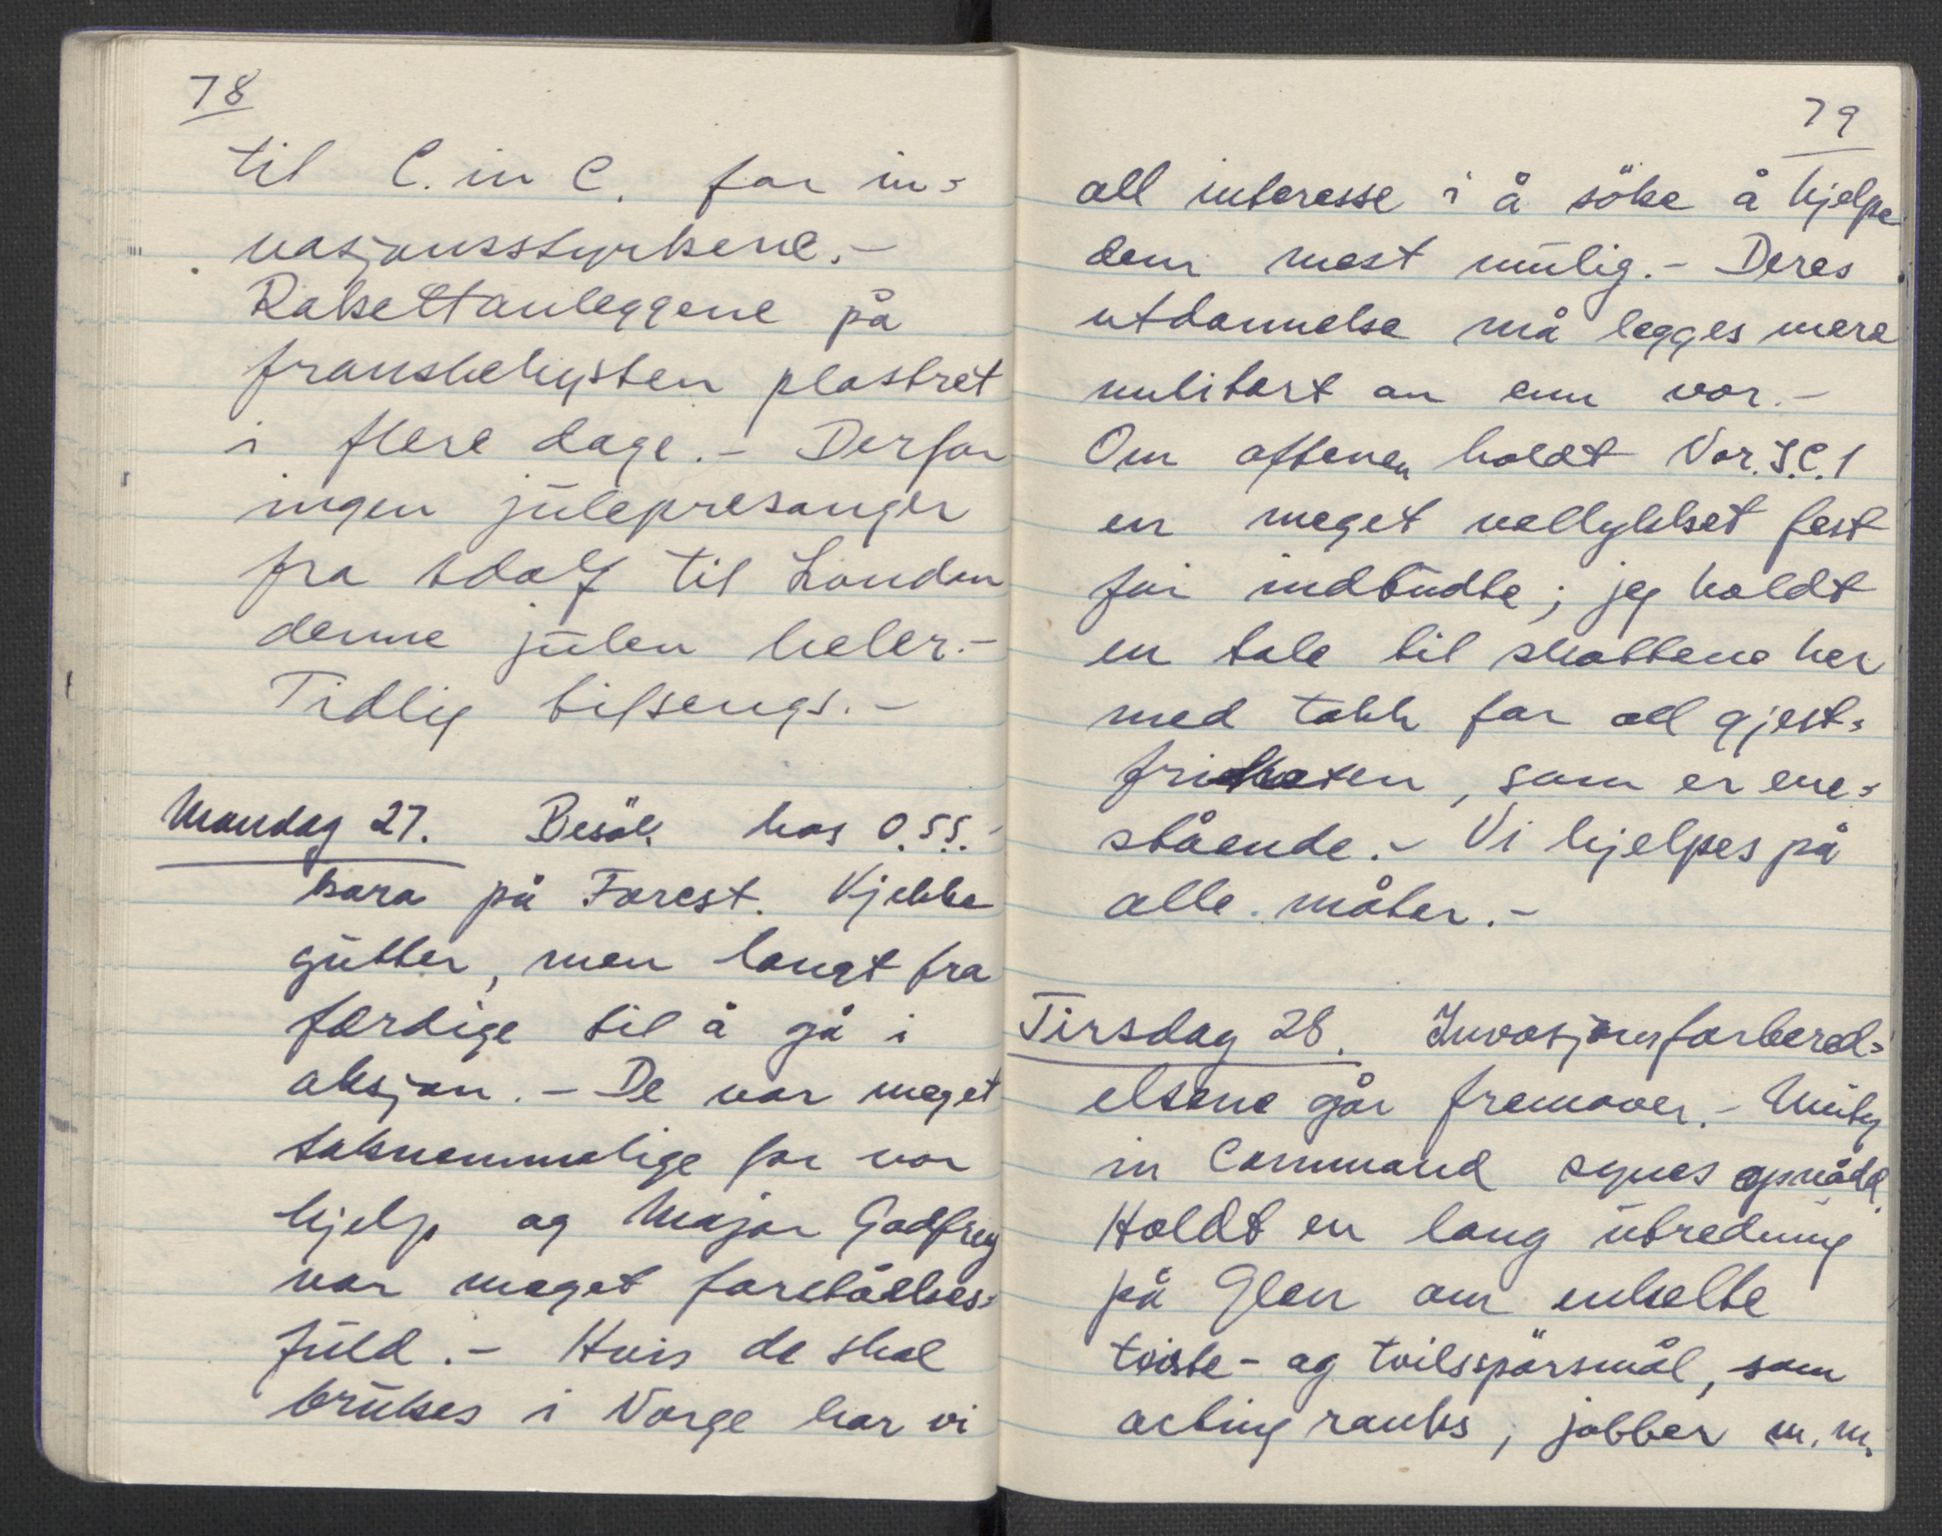 78
til C. in C. for in=
vasjonsstyrkene.-
Rakettanleggene på
franskekysten plastret
i flere dage.- Derfor
ingen julepresanger
fra Adolf til London
denne julen heler.-
Tidlig tilsengs.-
Mandag 27. Besök hos O.S.S.-
kara på Forest. Kjekke
gutter, men langt fra
færdige til å gå i
aksjon.- De var meget
taknemmelige for vor
hjelp og Major Godfrey
var meget forståelses=
fuld.- Hvis de skal
brukes i Norge har vi
79
all interesse i å söke å hjelpe
dem mest mulig.- Deres
utdannelse må legges mere
militært an enn vor.-
Om aftenen holdt Nor.I.C.1
en meget vellykket fest
for indbudte; jeg holdt
en tale til skottene her
med takk for all gjest=
friheten, som er ene=
stående.- Vi hjelpes på
alle måter.-
Tirsdag 28. Invasjonsforbered=
elsene går fremover.- Unity
in Command synes opnådd.
Holdt en lang utredning
på Glen om enkelte
tviste- og tvilsspörsmål, som
acting ranks, jobber m.m.